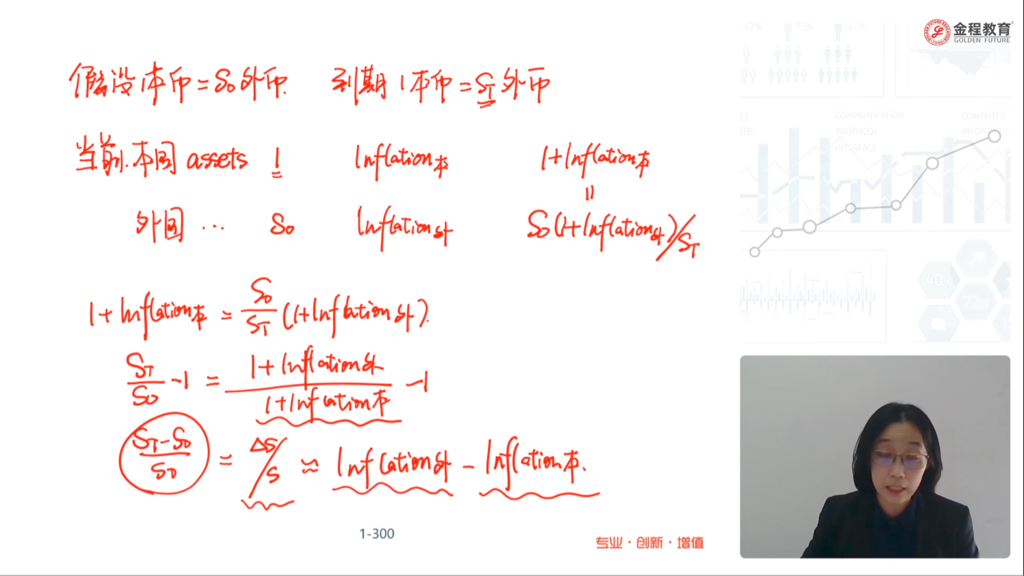 金程教育
GOLDEN FUTURE
假设1本币=S0外币. 到期1本币=ST外币
当前.本国 assets 1 Inflation本 1+Inflation本
=
外国 ... S0 Inflation外 S0(1+Inflation外)/ST
1+Inflation本 = S0/ST (1+Inflation外).
ST/S0 -1 = (1+Inflation外)/(1+Inflation本) -1
(ST-S0)/S0 = ΔS/S ≈ Inflation外 - Inflation本.
1-300
专业·创新·增值